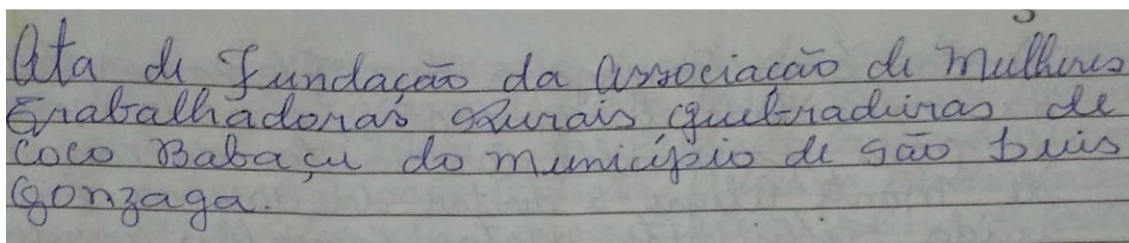 Ata de Fundação da Associacão de Mulheres
Trabalhadoras Rurais Quebradeiras de
Coco Babaçu do município de São Luis
Gonzaga.